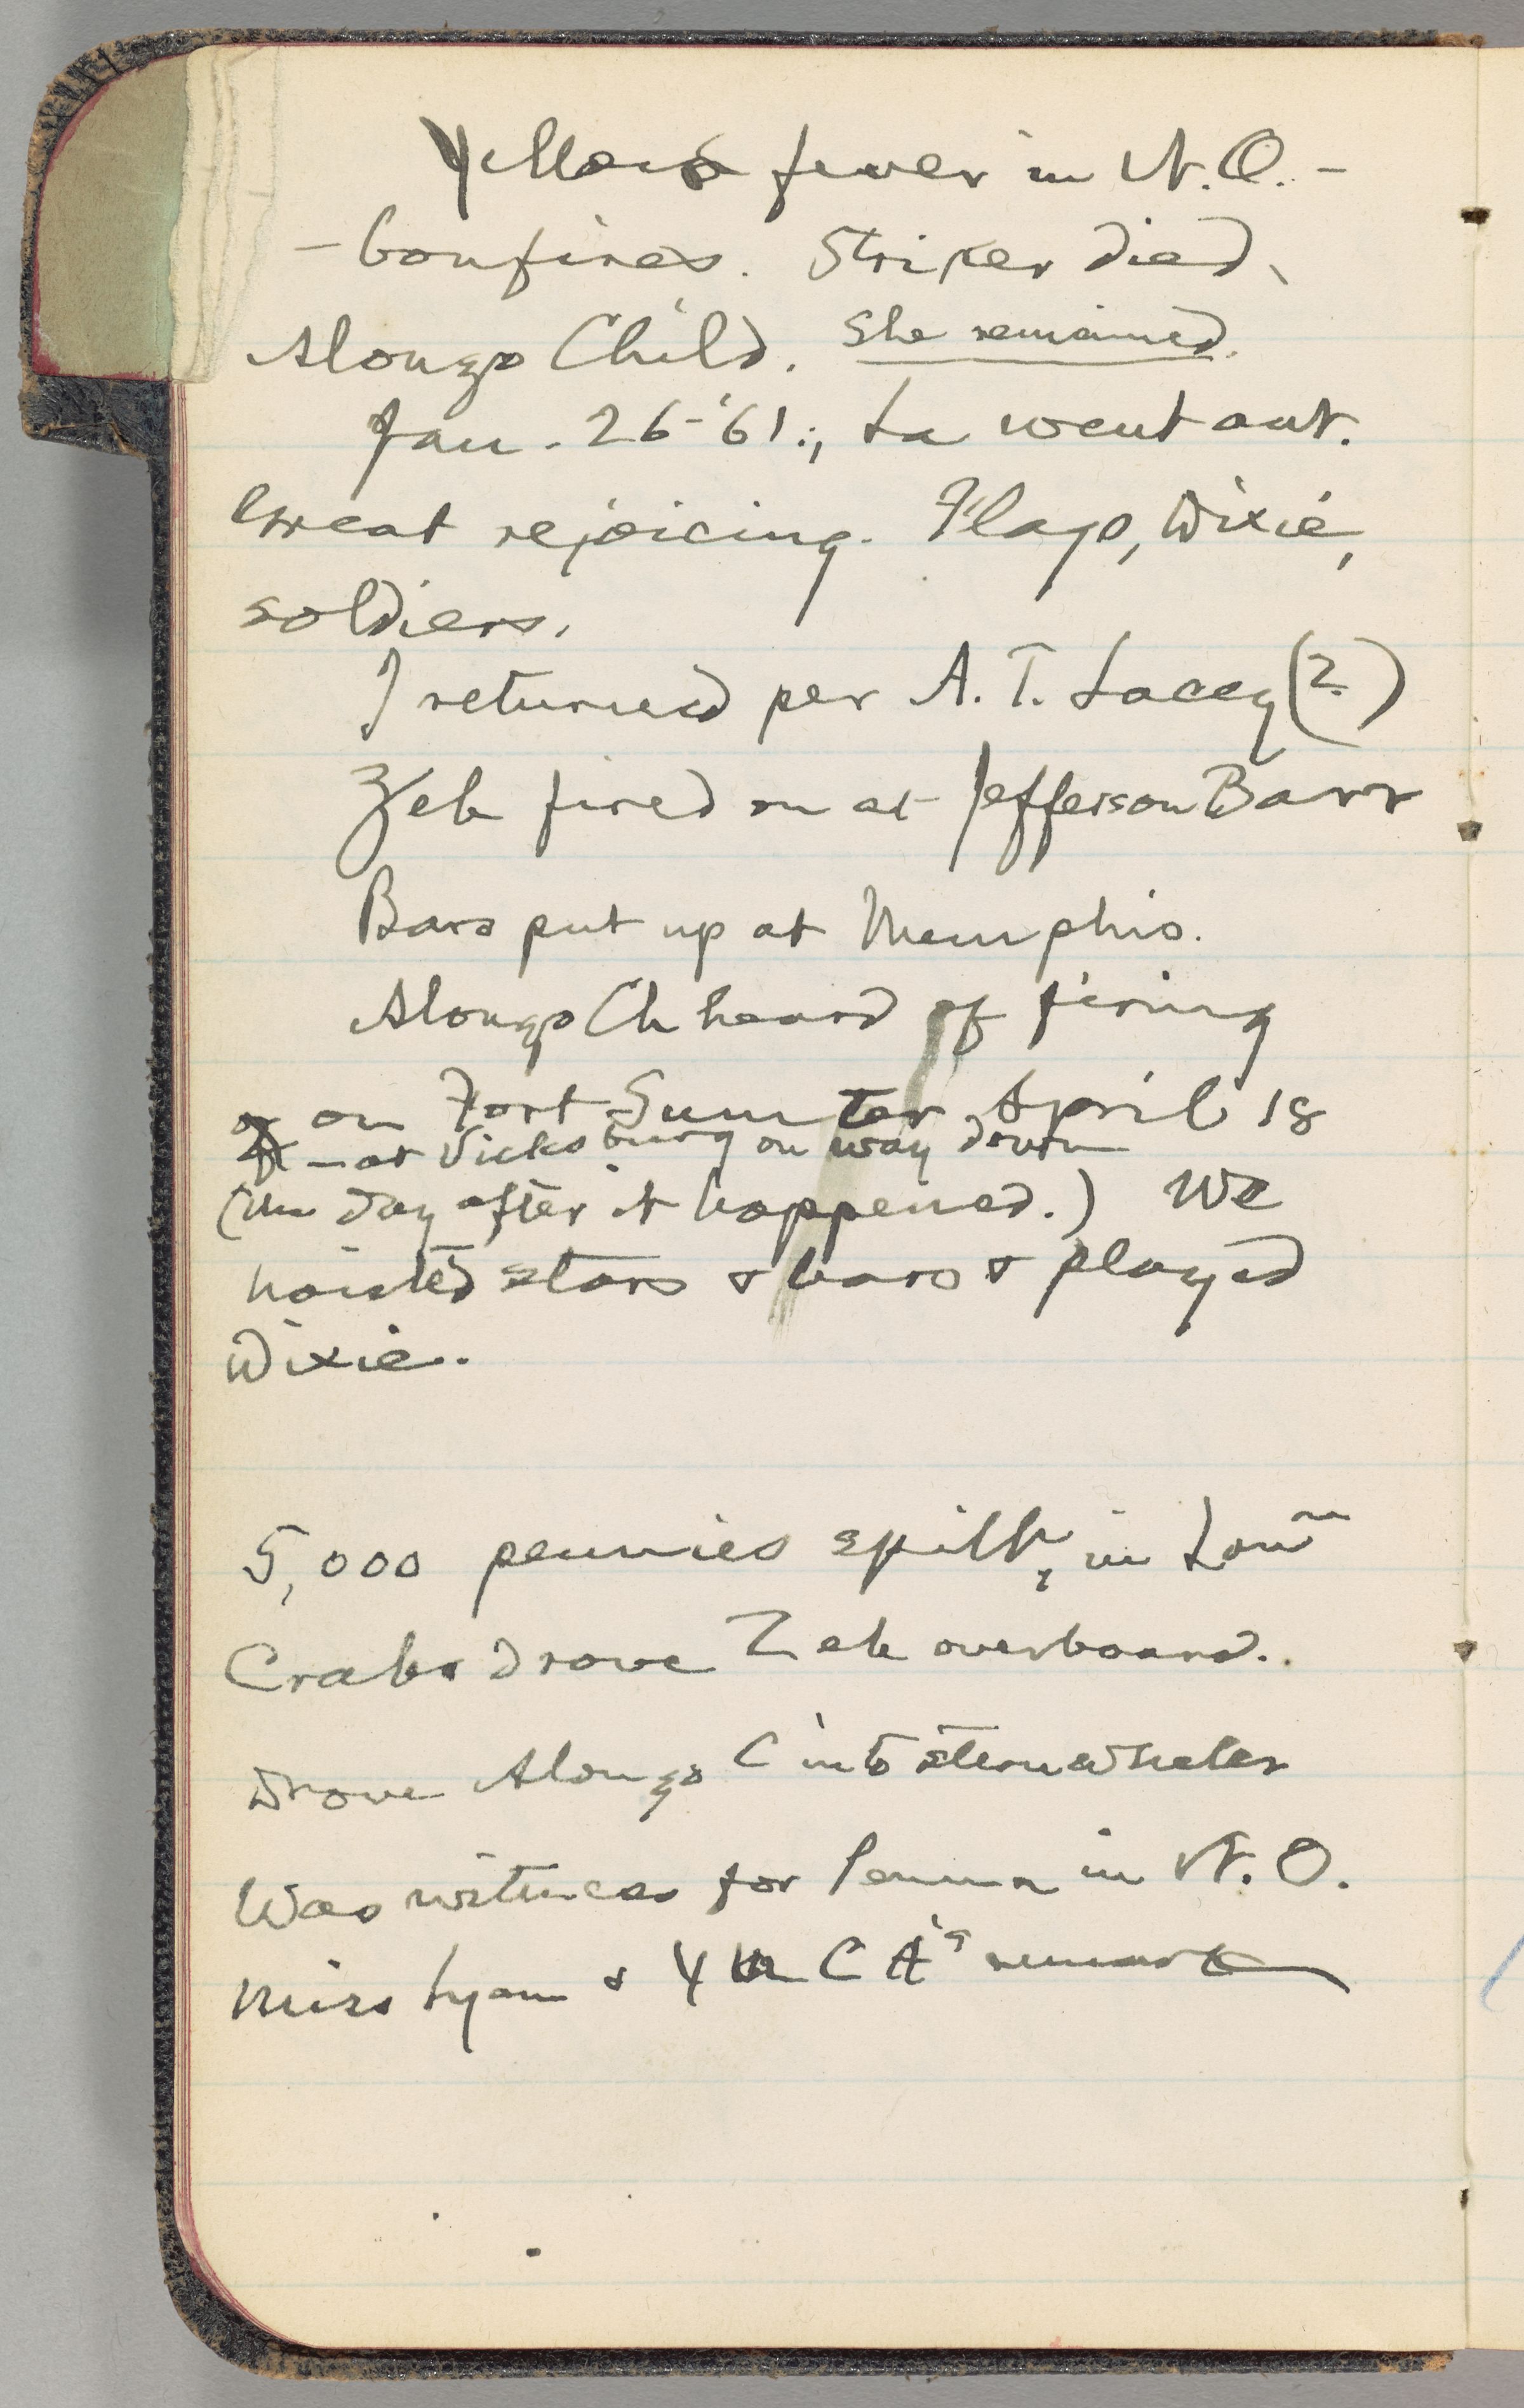 Yellow fever in N.O. –
– bonfires. Striker died,
Alonzo Child. She remained.
Jan. 26–'61., La went out.
Great rejoicing. Flags, Dixie,
soldiers.
I returned per A. T. Lacey (?)
Zeb fired on at Jefferson Barr
Bars put up at Memphis.
Alonzo Ch heard of firing
on Fort Sumter April 18
– at Vicksburg on way down
(the day after it happened.) We
hoisted stars & bars & played
Dixie.
5,000 pennies spilt, in Lou
Crabs drove Zeb overboard.
Drove Alonzo C into sternwheeler
Was witness for Penn in N.O.
Miss Lyon & remark